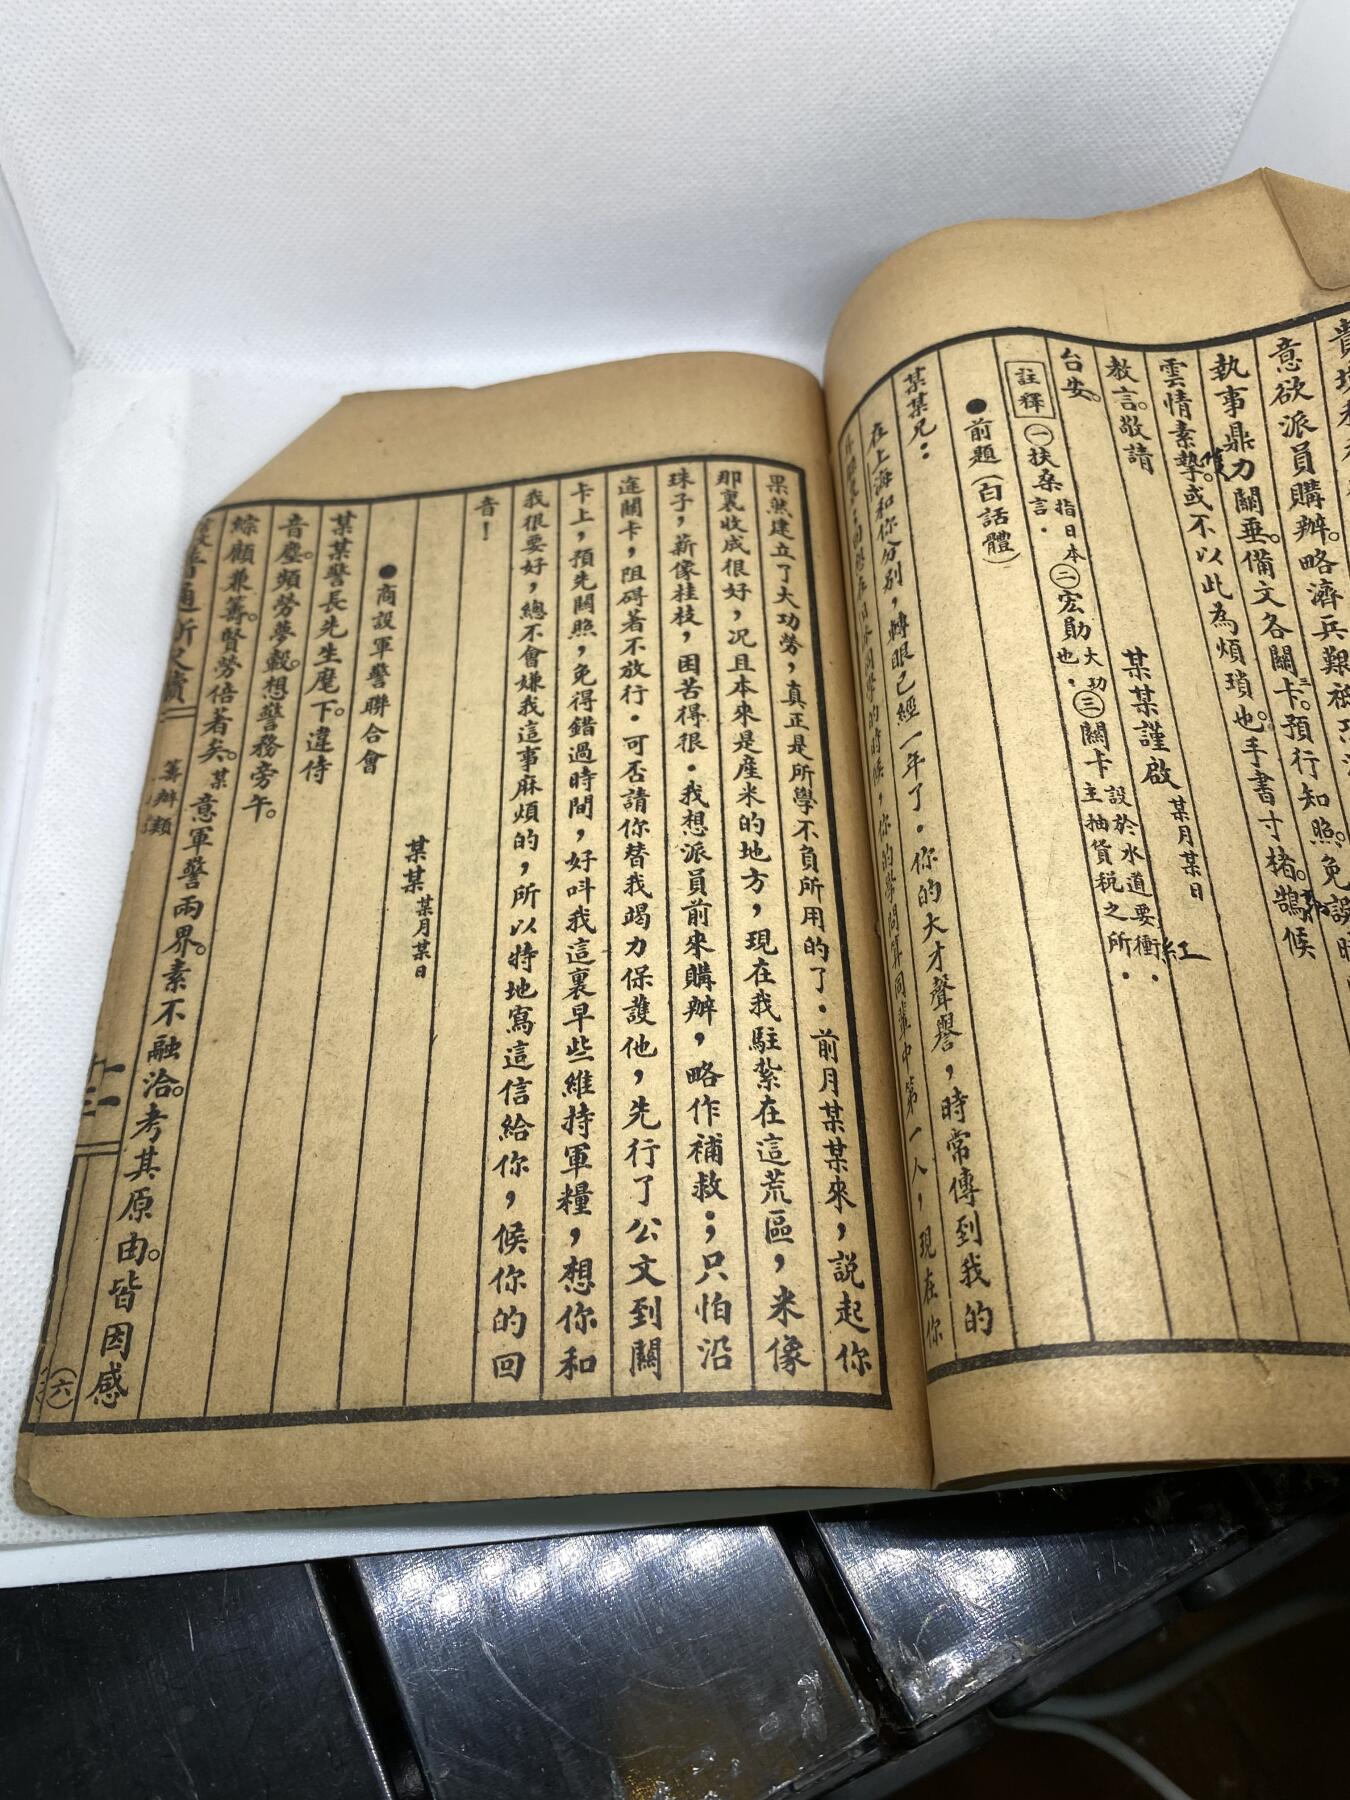 意欲派員購辦。略濟兵艱。
執事鼎力關垂。備文各關卡。三預行知照。免誤時
雲情素摯。或不以此為煩瑣也。手書寸楮。鵠候
教言。敬請
台安。
某某謹啟 某月某日
紅
註釋 ㊀扶桑 指日本言. ㊁宏勛 大功也. ㊂關卡 設於水道要衝. 主抽貨稅之所.
●前題(白話體)
某某兄:
在上海和你分別,轉眼已經一年了.你的大才聲譽,時常傳到我的
的時候,你的學問算同輩中第一人,現在你
果然建立了大功勞,真正是所學不負所用的了.前月某某來,説起你
那裏收成很好,况且本來是產米的地方,現在我駐紮在這荒區,米像
珠子,薪像桂枝,困苦得很.我想派員前來購辦,略作補救;只怕沿
途關卡,阻碍著不放行.可否請你替我竭力保護他,先行了公文到關
卡上,預先關照,免得錯過時間,好叫我這裏早些維持軍糧,想你和
我很要好,總不會嫌我這事麻煩的,所以特地寫這信給你,候你的回
音!
某某 某月某日
●商設軍警聯合會
某某警長先生麾下。違侍
音塵。頻勞夢轂。想警務旁午。
綜顧兼籌。賢勞倍著矣。某意軍警兩界。素不融洽。考其原由。皆因感
籌辦類
十三
(六)